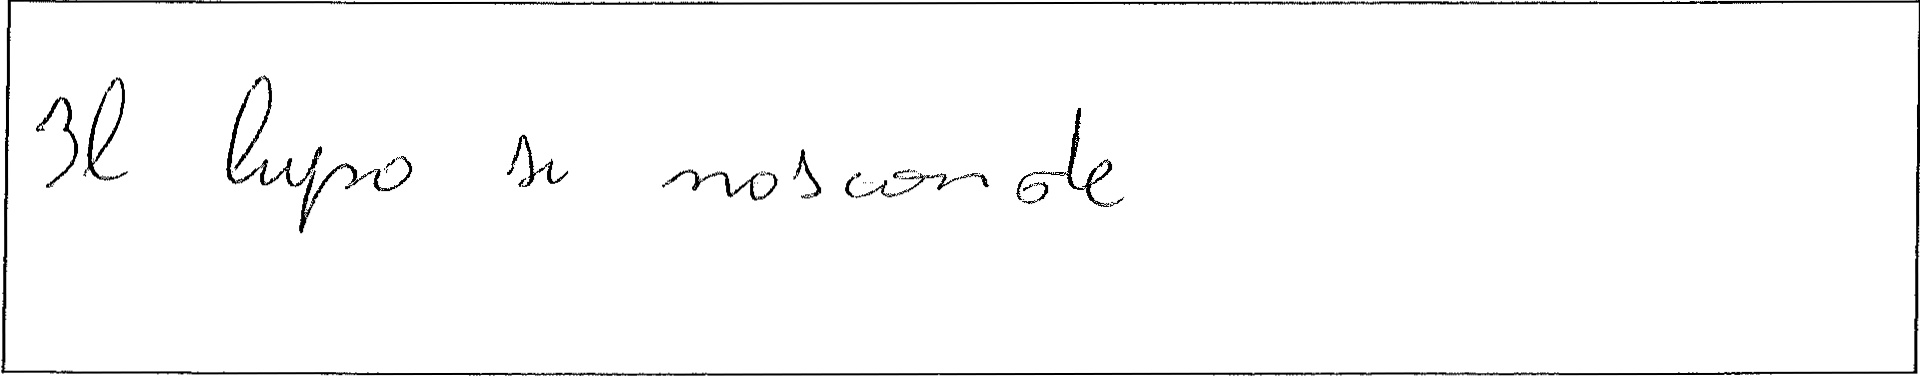 Il lupo si nasconde